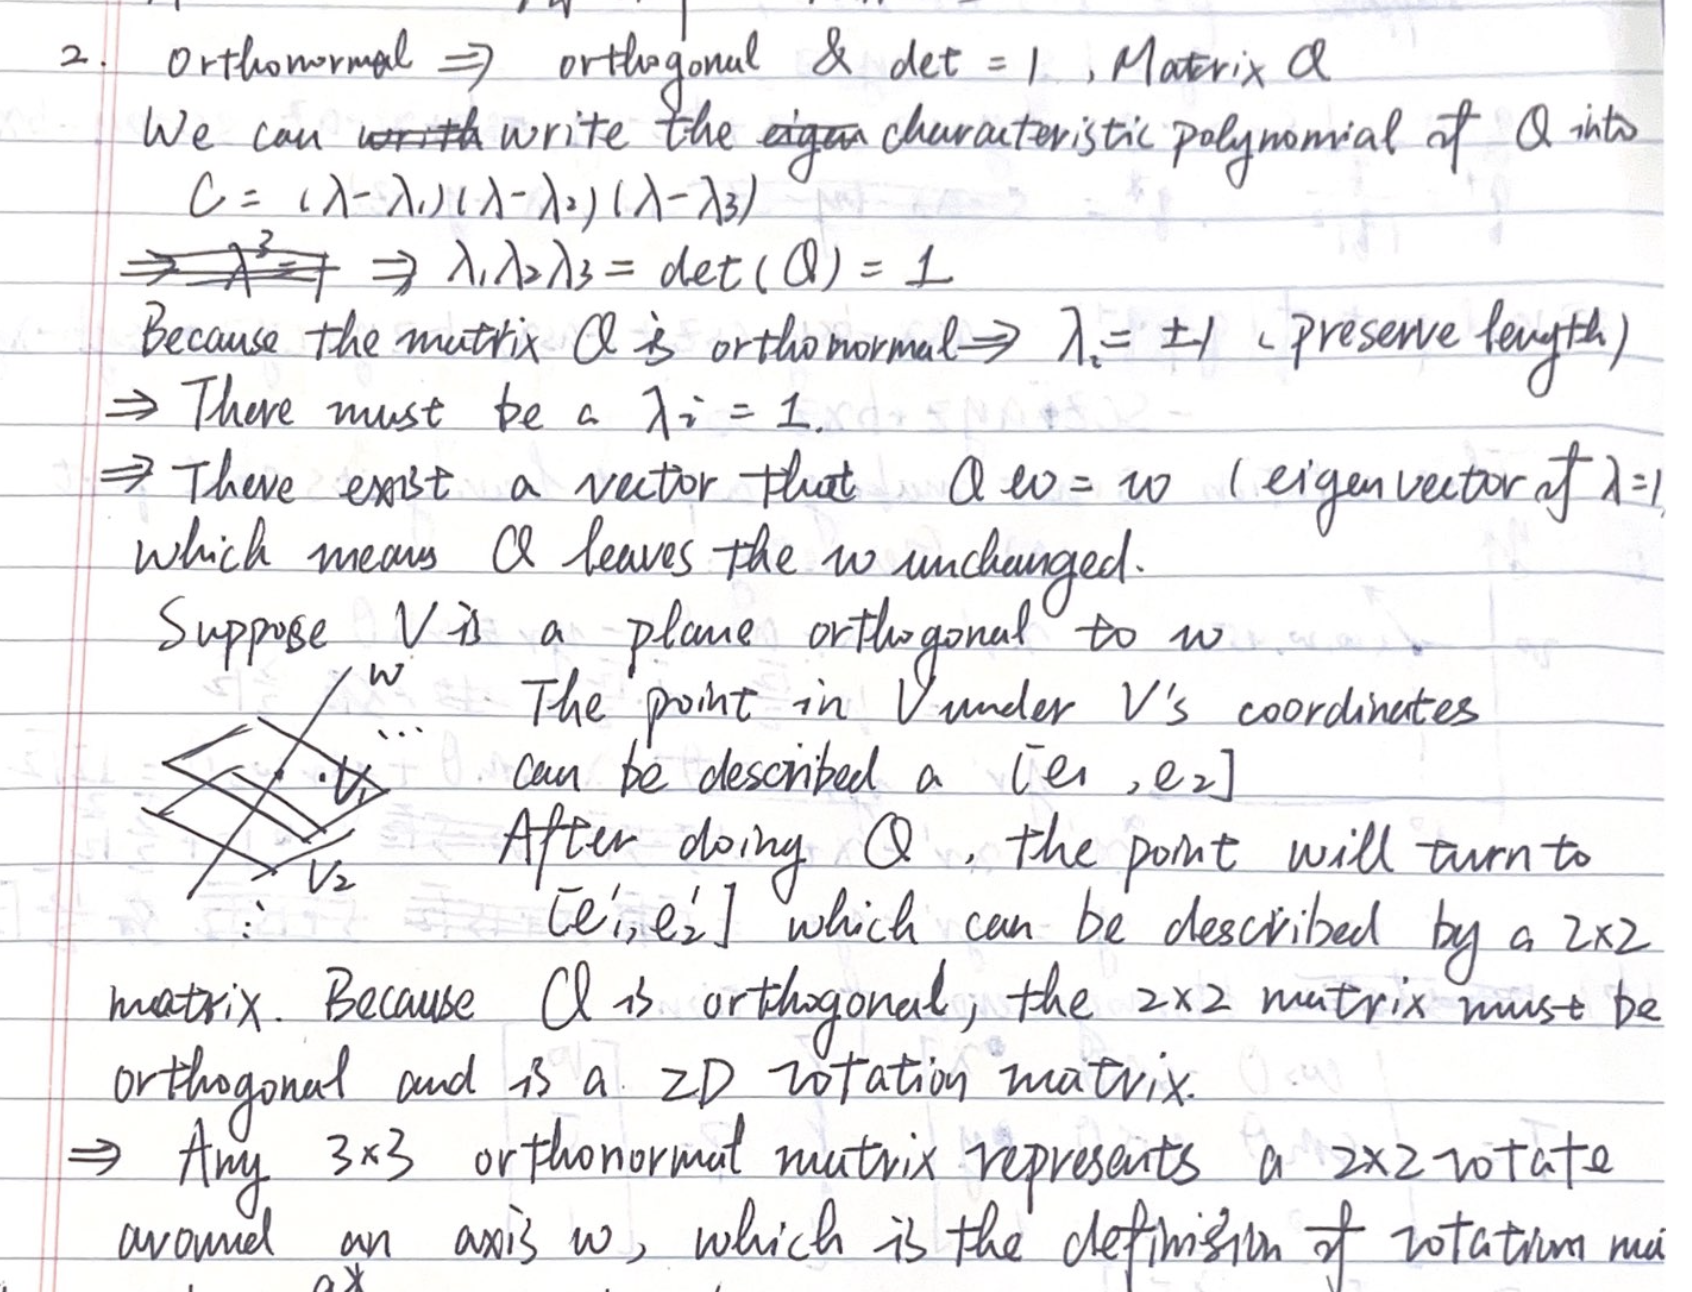 2. Orthonormal ⇒ orthogonal & det = 1, Matrix Q
We can write the characteristic polynomial of Q into
C = (λ-λ₁)(λ-λ₂)(λ-λ₃)
⇒ λ₁λ₂λ₃ = det(Q) = 1
Because the matrix Q is orthonormal ⇒ λᵢ = ±1 (preserve length)
⇒ There must be a λi = 1.
⇒ There exist a vector that Qw = w (eigenvector of λ=1
which means Q leaves the w unchanged.
Suppose V is a plane orthogonal to w
w
The point in V under V's coordinates
...
V₁
can be described a [e₁, e₂]
After doing Q, the point will turn to
V₂
[e₁', e₂'] which can be described by a 2×2
matrix. Because Q is orthogonal, the 2×2 matrix must be
orthogonal and is a 2D rotation matrix.
⇒ Any 3×3 orthonormal matrix represents a 2×2 rotate
around an axis w, which is the definision of rotation ma